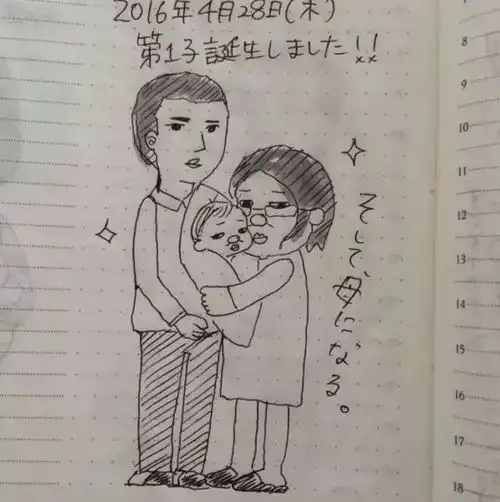 2016年4月28日(木)
第1子誕生しました!!
そして、母になる。
7
8
9
10
11
12
13
14
15
16
17
18